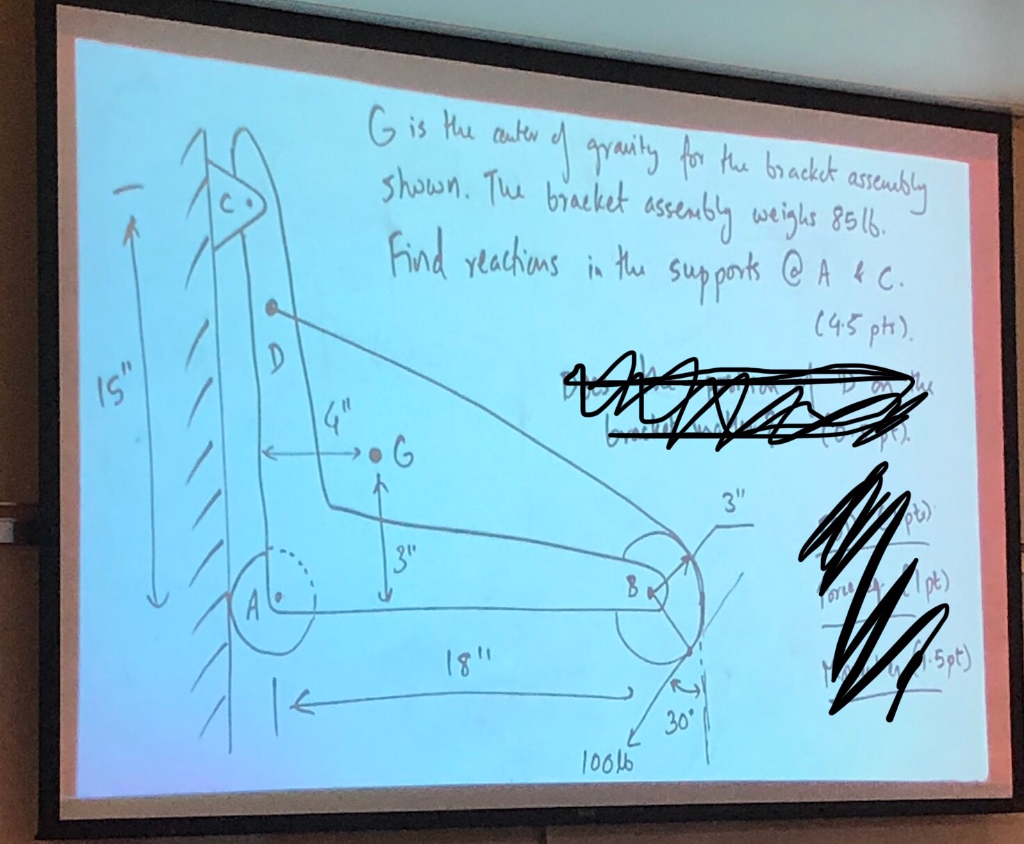 G is the center of gravity for the bracket assembly
shown. The bracket assembly weighs 85lb.
Find reactions in the supports @ A & C.
(4.5 pts).
C
D
15"
4"
G
3"
3"
A
B
18"
30°
100lb